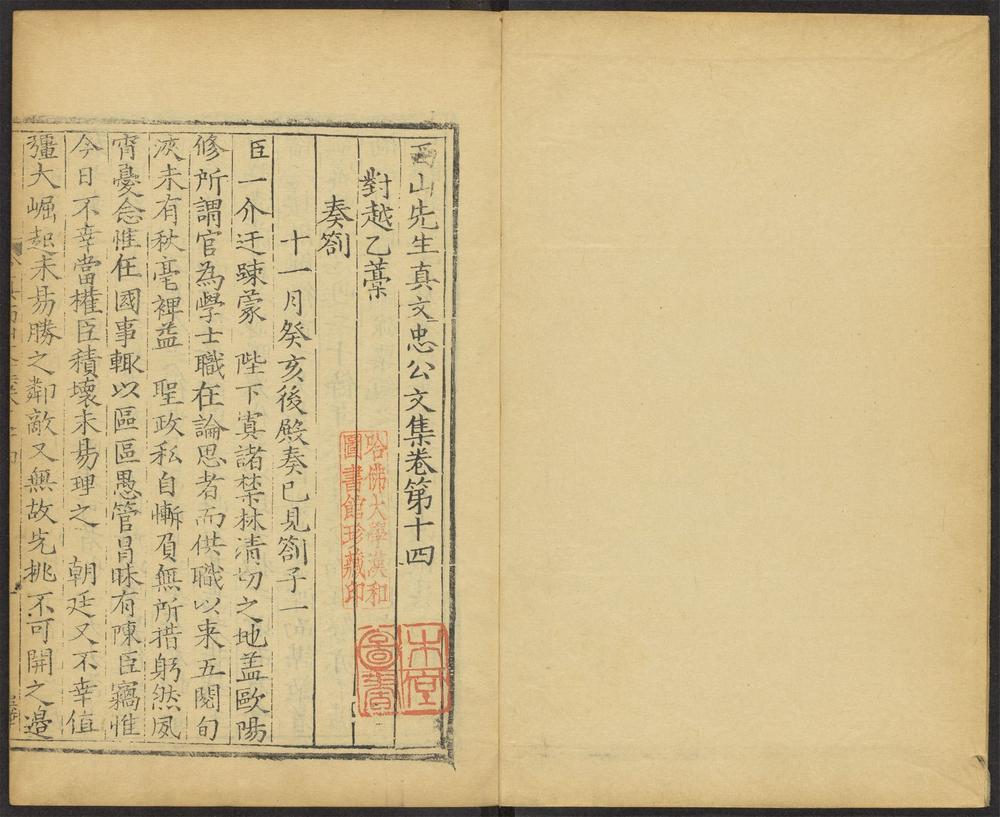 西山先生真文忠公文集卷第十四
對越乙藁
奏劄
十一月癸亥後殿奏已見劄子一
臣一介迂踈蒙 陛下寘諸禁林清切之地盖歐陽
修所謂官為學士職在論思者而供職以来五閱旬
浹未有秋毫裨益 聖政私自慚負無所措躬然夙
宵憂念惟在國事輙以區區愚管昌昧有陳臣竊惟
今日不幸當權臣積壞未易理之 朝廷又不幸值
彊大崛起未易勝之鄰敵又無故先挑不可開之邉
哈佛大學漢和
圖書館珍藏印
木堂
圖書